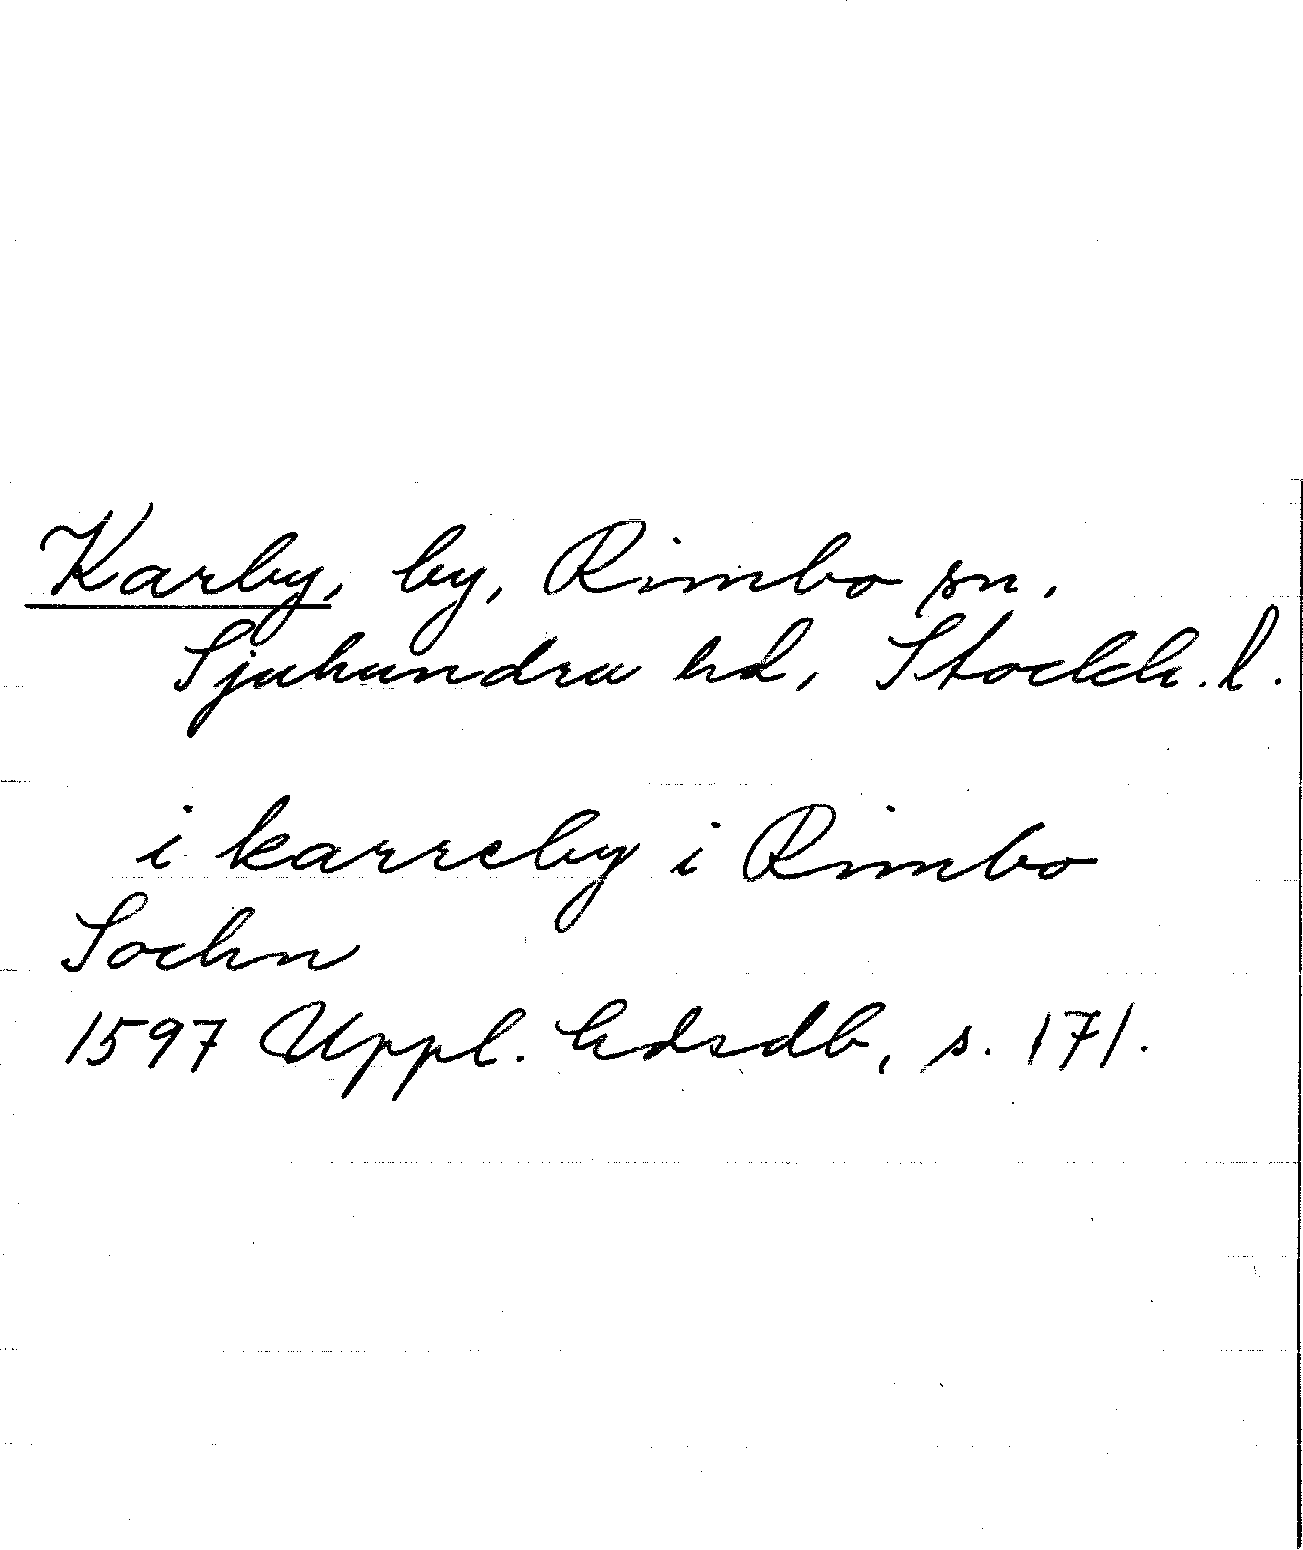 Karby, by, Rimbo sn.
Sjuhundra hd, Stockh. l.
i karreby i Rimbo
Sochn
1597 Uppl. hdsdb, s. 171.